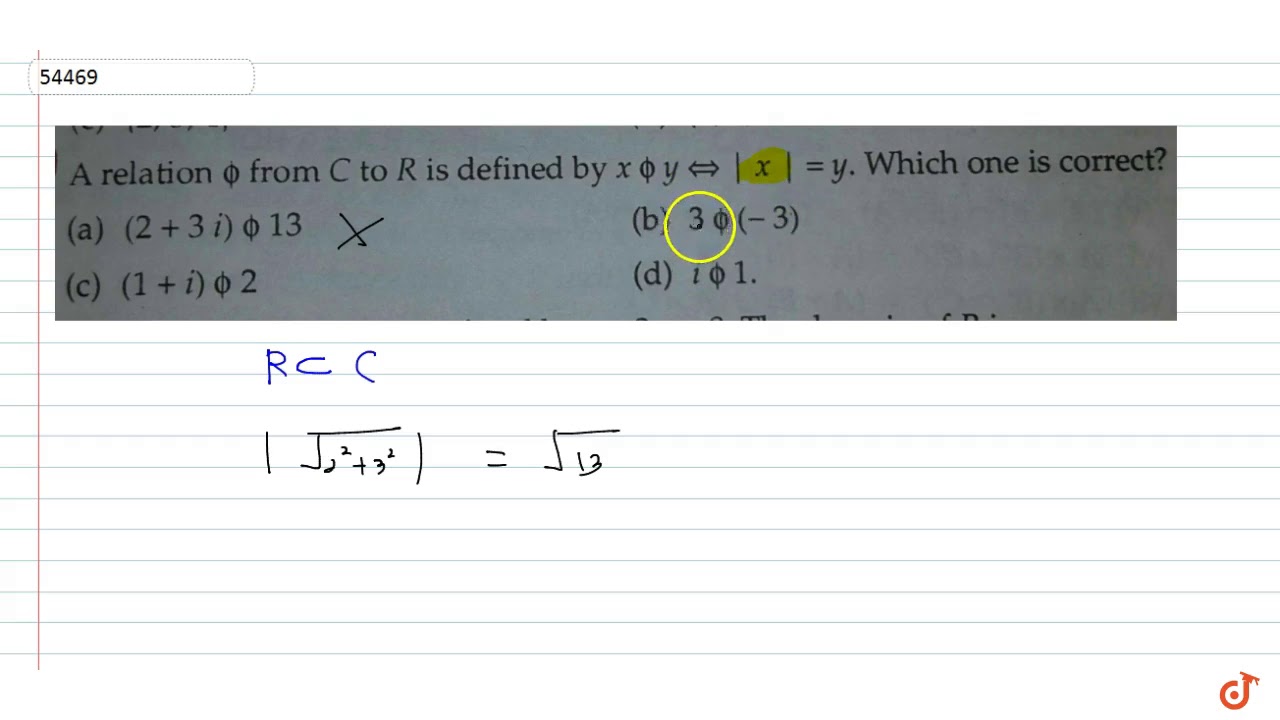 54469
A relation ϕ from C to R is defined by x ϕ y ⇔ | x | = y. Which one is correct?
(a) (2 + 3 i) ϕ 13 (b) 3 ϕ (– 3)
(c) (1 + i) ϕ 2 (d) i ϕ 1.
R ⊂ C
| √2² + 3² | = √13